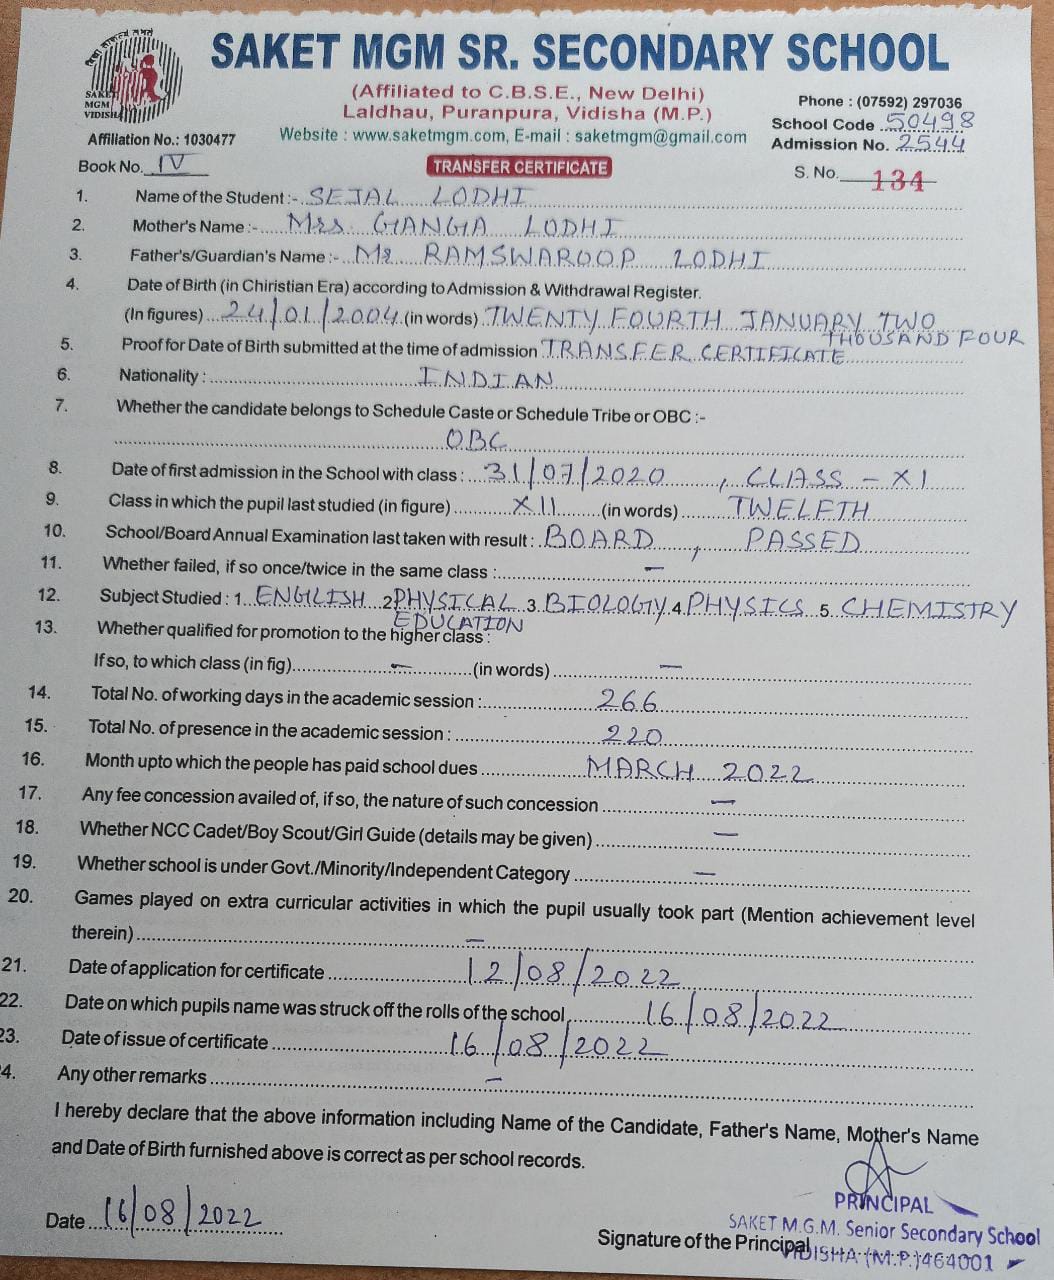 SAKET MGM SR. SECONDARY SCHOOL
SAKET
MGM
VIDISHA
(Affiliated to C.B.S.E., New Delhi)
Laldhau, Puranpura, Vidisha (M.P.)
Phone : (07592) 297036
School Code 50498
Affiliation No.: 1030477
Website : www.saketmgm.com, E-mail : saketmgm@gmail.com
Admission No. 2544
Book No. IV
TRANSFER CERTIFICATE
S. No. 134
1. Name of the Student :- SEJAL LODHI
2. Mother's Name :- Mrs GANGA LODHI
3. Father's/Guardian's Name :- Mr RAMSWAROOP LODHI
4. Date of Birth (in Chiristian Era) according to Admission & Withdrawal Register.
(In figures) 24/01/2004 (in words) TWENTY FOURTH JANUARY TWO
THOUSAND FOUR
5. Proof for Date of Birth submitted at the time of admission TRANSFER CERTIFICATE
6. Nationality : INDIAN
7. Whether the candidate belongs to Schedule Caste or Schedule Tribe or OBC :-
OBC
8. Date of first admission in the School with class : 31/07/2020 , CLASS - XI
9. Class in which the pupil last studied (in figure) XII (in words) TWELFTH
10. School/Board Annual Examination last taken with result : BOARD , PASSED
11. Whether failed, if so once/twice in the same class : -
12. Subject Studied : 1. ENGLISH 2 PHYSICAL 3. BIOLOGY 4. PHYSICS 5. CHEMISTRY
EDUCATION
13. Whether qualified for promotion to the higher class :
If so, to which class (in fig) - (in words) -
14. Total No. of working days in the academic session : 266
15. Total No. of presence in the academic session : 220
16. Month upto which the people has paid school dues MARCH 2022
17. Any fee concession availed of, if so, the nature of such concession -
18. Whether NCC Cadet/Boy Scout/Girl Guide (details may be given) -
19. Whether school is under Govt./Minority/Independent Category -
20. Games played on extra curricular activities in which the pupil usually took part (Mention achievement level
therein) -
21. Date of application for certificate 12/08/2022
22. Date on which pupils name was struck off the rolls of the school 16/08/2022
23. Date of issue of certificate 16/08/2022
4. Any other remarks -
I hereby declare that the above information including Name of the Candidate, Father's Name, Mother's Name
and Date of Birth furnished above is correct as per school records.
PRINCIPAL
Date 16/08/2022
SAKET M.G.M. Senior Secondary School
Signature of the Principal
VIDISHA (M.P.) 464001